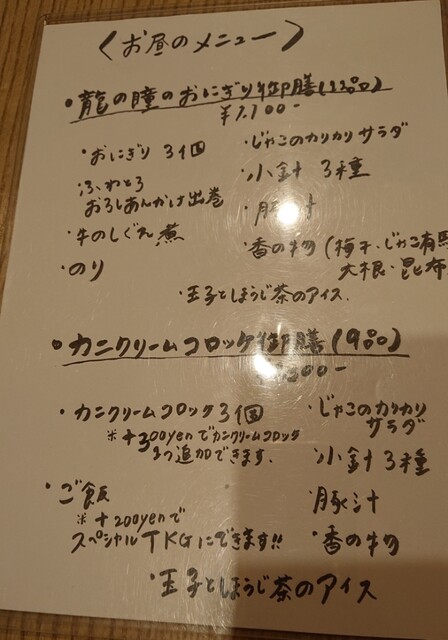 〈お昼のメニュー〉
・龍の瞳のおにぎり御膳(13品)
¥1,100-
・おにぎり 3個
・ふわとろ
おろしあんかけ出巻
・牛のしぐれ煮
・のり
・じゃこのカリカリサラダ
・小針 3種
・豚汁
・香の物(梅干・じゃこ有馬
大根・昆布
・玉子とほうじ茶のアイス.
・カニクリームコロッケ御膳(9品)
300-
・カニクリームコロッケ3個
※+300yenでカニクリームコロッケ
1つ追加できます.
・ご飯
※+200yenで
スペシャルTKGにできます!!
・じゃこのカリカリ
サラダ
・小針3種
・豚汁
・香の物
・玉子とほうじ茶のアイス